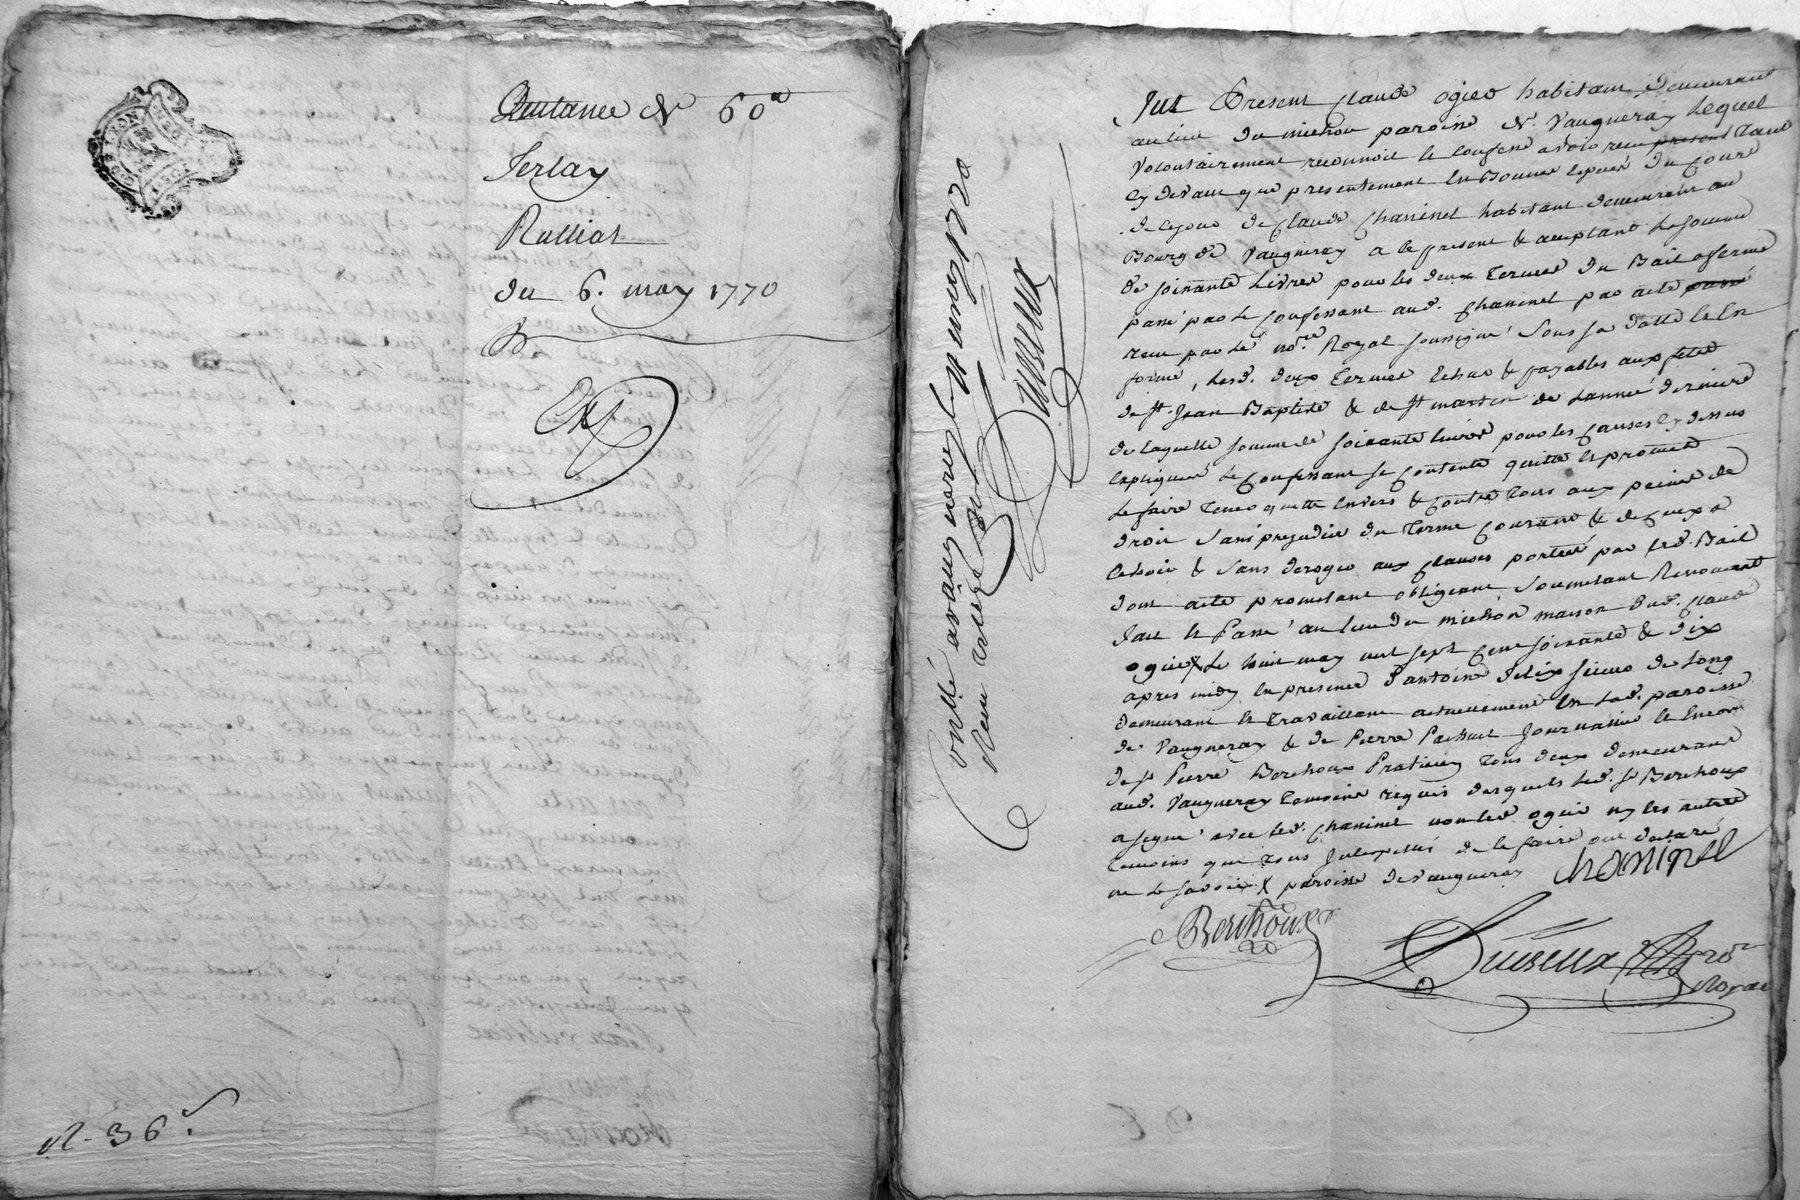 Quitance de 60#
Ferlay
Rulliat
du 6. may 1770
Ex
n. 36.
Controllé a vaugneray le may 1770
Reçu
Duiseux
Fut Present Claude ogier habitant demeurant
au lieu du michon paroisse de Vaugneray Lequel
volontairement reconnoit & confesse avoir recu present tant
cy devant que presentement En Bonnes Especes du Cours
de ce jour de Claude Chaninel habitant demeurant au
Bourg de Vaugneray a ce present & acceptant La somme
de soixante Livres pour les deux Termes du Bail afferme
passé par Le Confessant aud. Chaninel par acte passé
recu par Le nore. Royal soussigné sous sa datte & En
forme, Lesd. deux Termes Echus & payables aux fetes
de St. Jean Baptiste & de St martin de Lannée derniere
de laquelle somme de soixante livres pour les Causes Cy dessus
Expliquées Le Confessant se Contente quitte & promet
Le faire Tenir quitte Envers & Contre Tous aux peines de
droit Sans prejudice du Terme Courant & de Ceux a
Echoir & Sans deroger aux Clauses portées par led. Bail
dont acte promettant obligeant Soumettant Renonçant
fait & Passé au lieu du michon maison dud. Claude
ogier X Le huit may mil sept Cent soixante & dix
apres midy En presence d'antoine Delix scieur de Long
demeurant & travaillant actuellement En Lad. paroisse
de Vaugneray & de Pierre Pachut Journalier & Encore
de sr Pierre Berchoux Praticien Tous deux demeurant
aud. Vaugneray Temoins requis desquels Led. sr Berchoux
a signé avec led. Chaninel non led. ogier ny les autres
Temoins que Tous Interpellés de le faire ont declaré
ne Le savoir X paroisse de Vaugneray
chaninel
Berchoux
Duiseux
nore
Royal